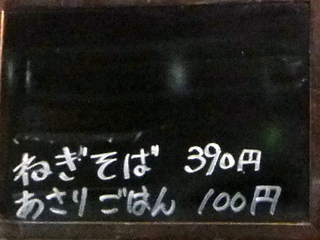 ねぎそば 390円
あさりごはん 100円